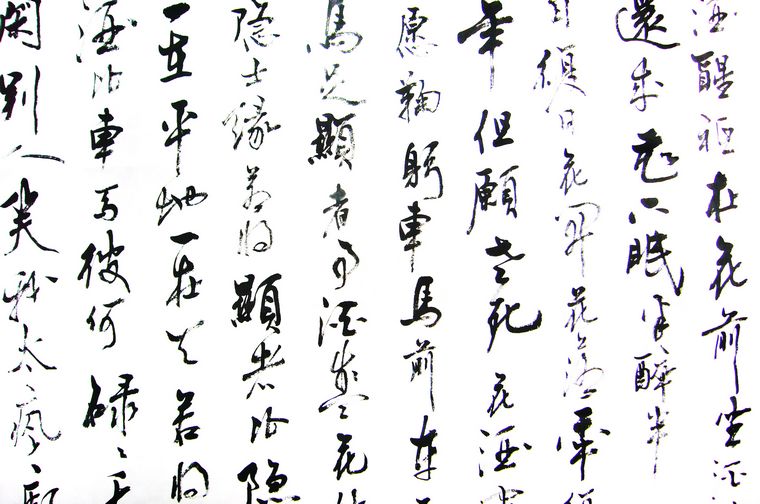 酒醒祗在花前坐酒
還來花下眠半醉半
日復日花開花落年
年但願老死花酒
愿鞠躬車馬前車
馬足顯者事酒盞花枝
隱士緣若將顯者比隱
一在平地一在天若將
酒比車馬彼何碌々
閑別人笑我太瘋